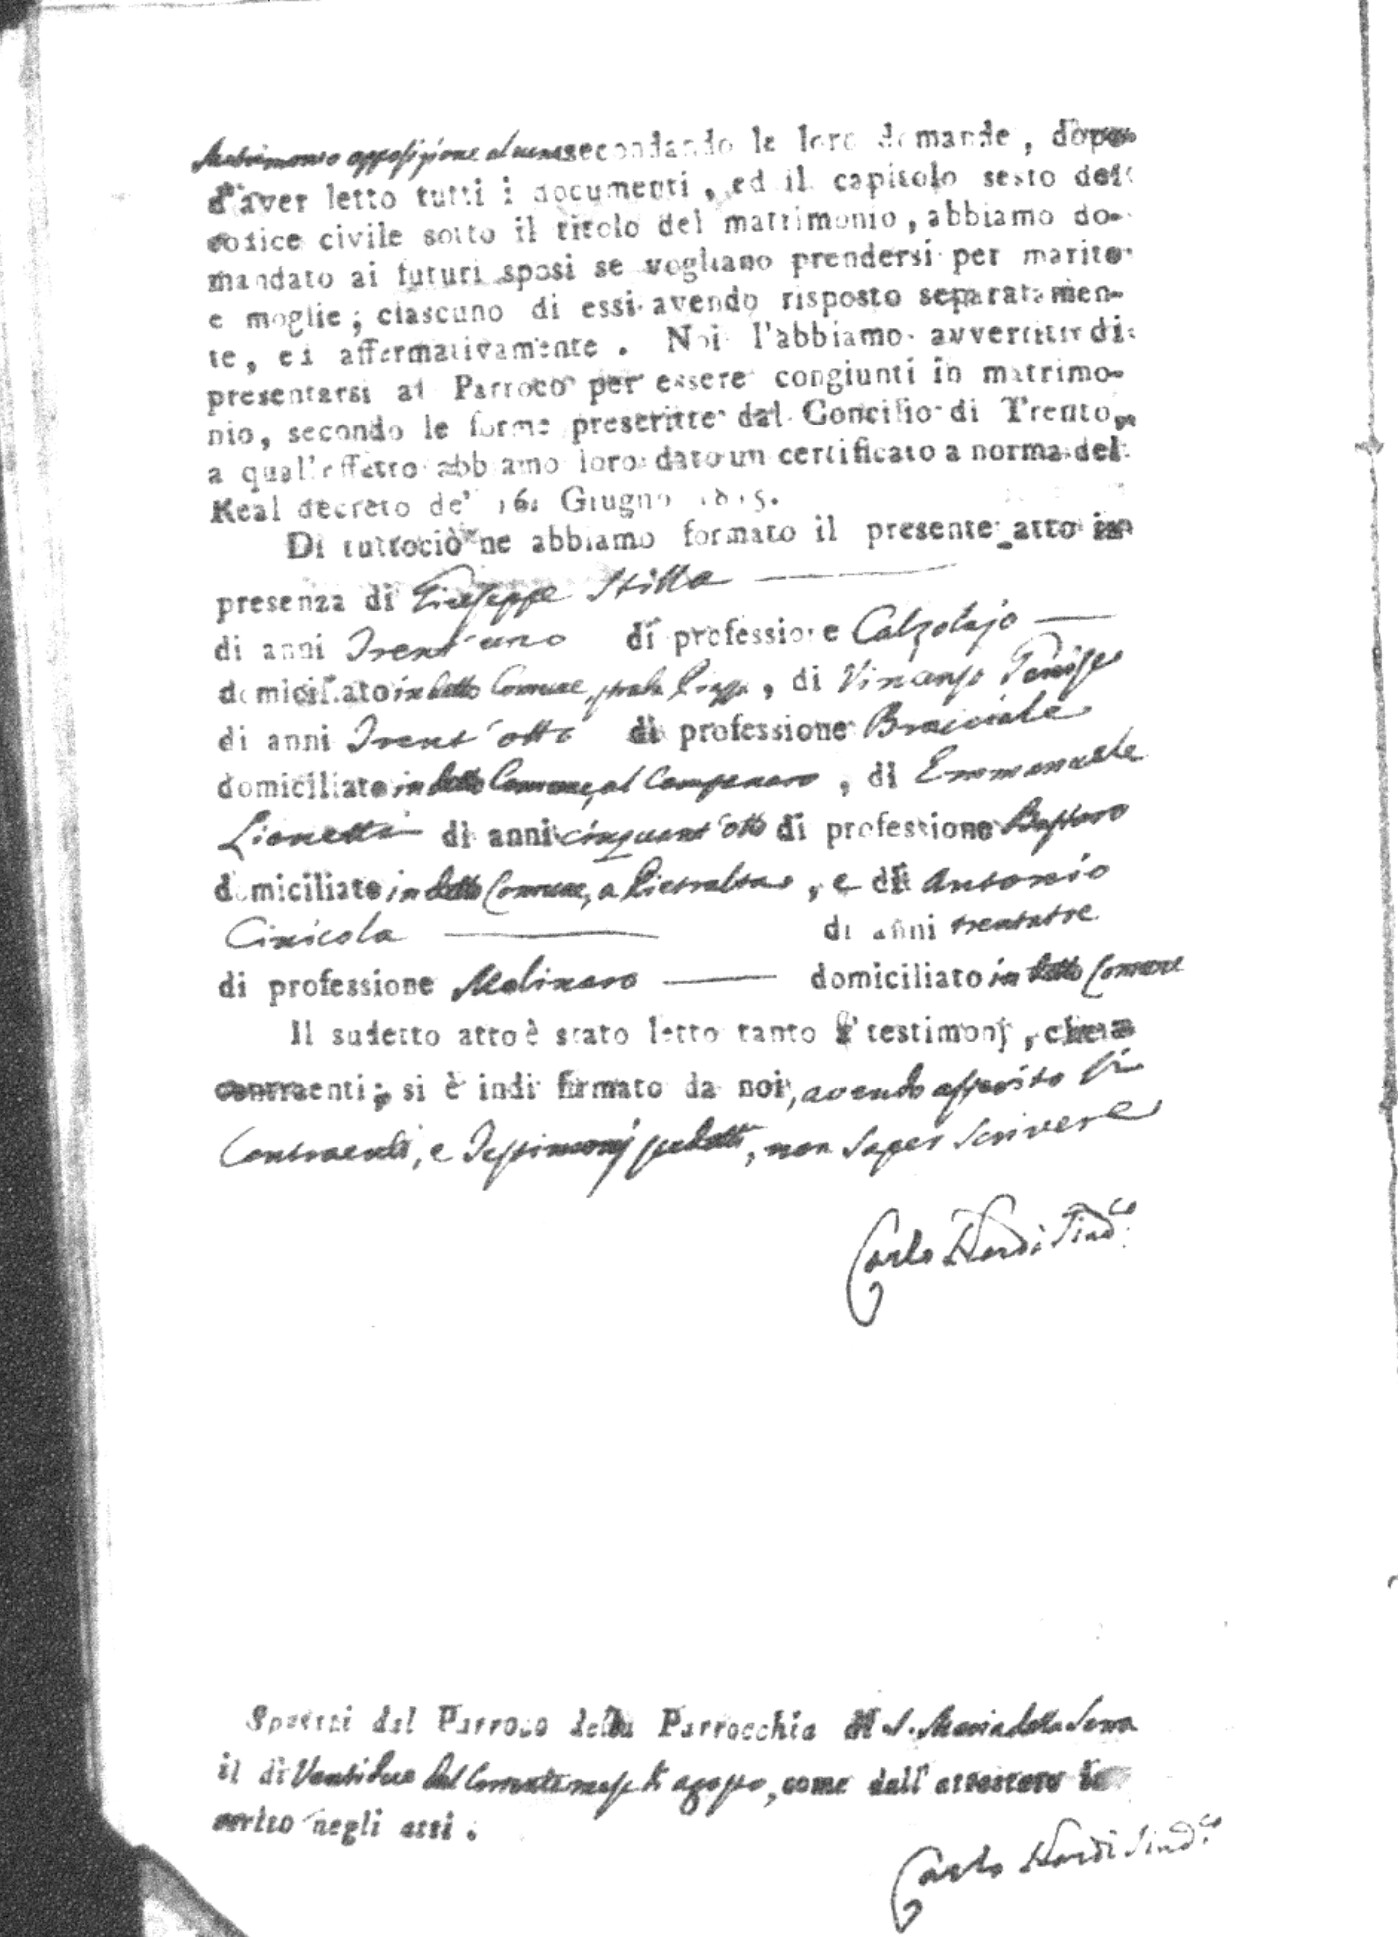 Matrimonio opposizione alcuna secondando le loro domande, dopo
d'aver letto tutti i documenti, ed il capitolo sesto del
codice civile sotto il titolo del matrimonio, abbiamo do-
mandato ai futuri sposi se vogliano prendersi per marito
e moglie; ciascuno di essi avendo risposto separatamen-
te, ed affermativamente. Noi l'abbiamo avvertiti di
presentarsi al Parroco per essere congiunti in matrimo-
nio, secondo le forme prescritte dal Concilio di Trento,
a qual'effetto abbiamo loro dato un certificato a norma del
Real decreto de' 16 Giugno 1815.
Di tuttociò ne abbiamo formato il presente atto in
presenza di Giuseppe Stilla
di anni Trent'uno di professione Calzolajo
domiciliato in detto Comune, , di Vincenzo
di anni Trent'otto di professione Bracciale
domiciliato in detto Comune, al Campenaro, di Emmanuele
Lionetti di anni cinquant'otto di professione Bastaro
domiciliato in detto Comune, a Pietralta, e di Antonio
Cinicola di anni trentatre
di professione Molinaro domiciliato in detto Comune
Il sudetto atto è stato letto tanto a' testimonj, che a
contraenti; si è indi firmato da noi, avendo asserito li
Contraenti, e Testimonj sudetti, non saper scrivere
Carlo Nardi Sind.co
Sposati dal Parroco della Parrocchia di S. Maria della Serra
il dì Ventidue del Corrente mese di agosto, come dall'attestato in
serito negli atti.
Carlo Nardi Sind.co